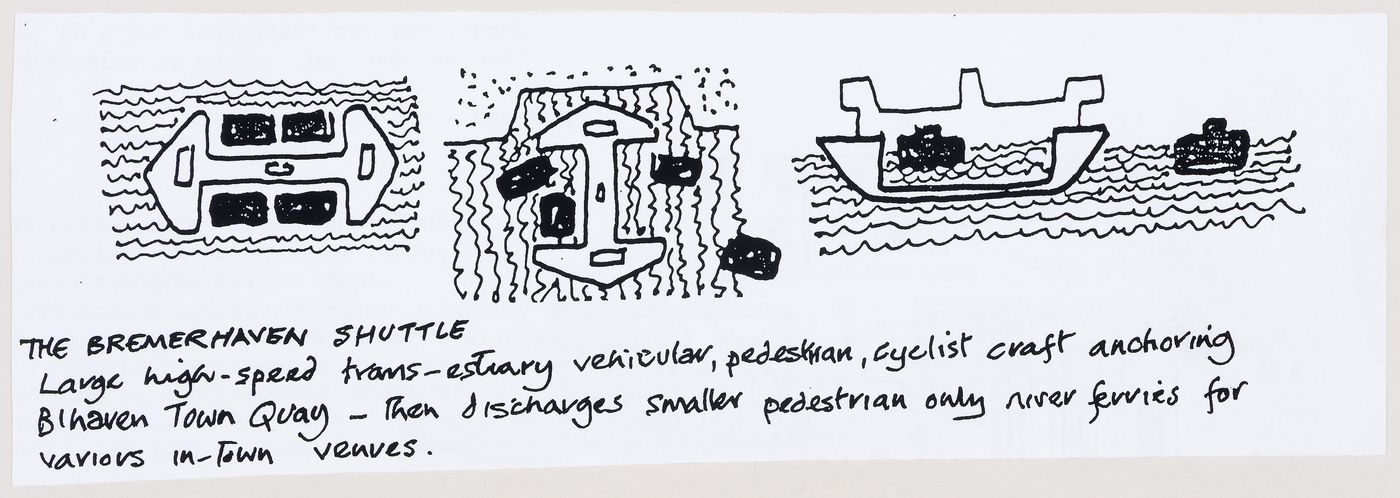 THE BREMERHAVEN SHUTTLE
Large high-speed trans-estuary vehicular, pedestrian, cyclist craft anchoring
B/haven Town Quay – Then discharges smaller pedestrian only river ferries for
various in-Town venues.